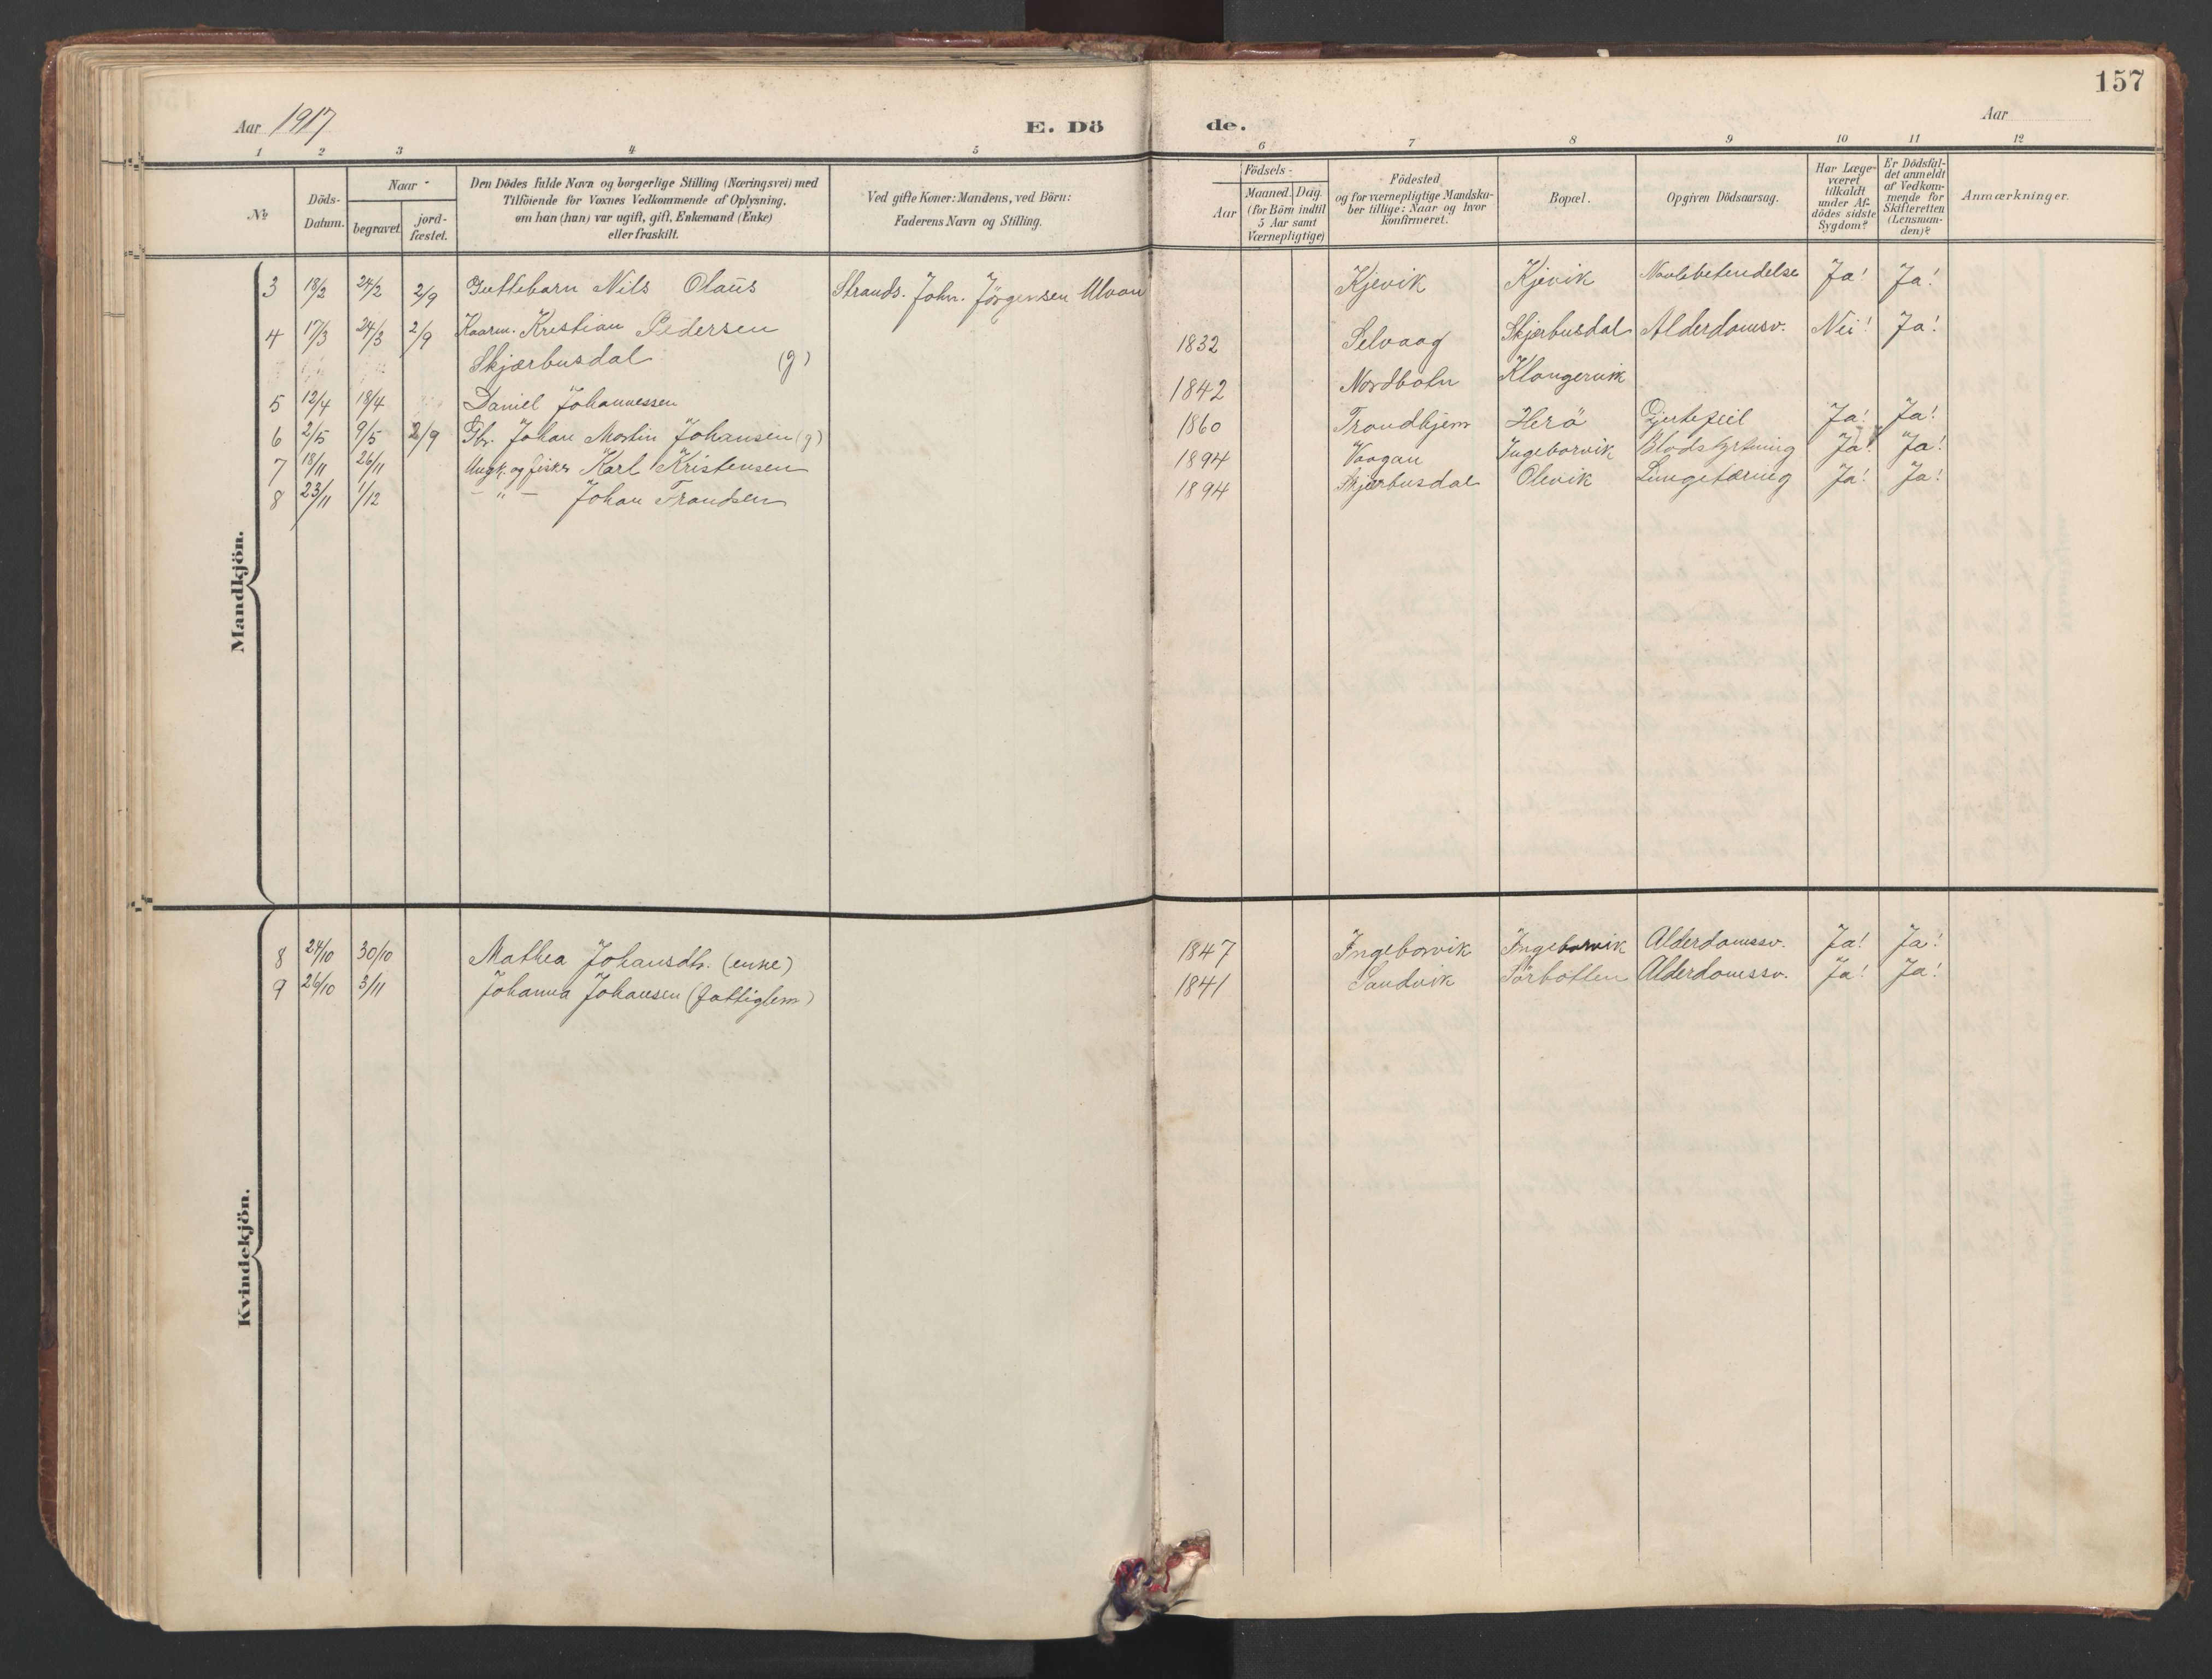 157
Aar 1917 E. Dö de. Aar
1 2 3 4 5 6 7 8 9 10 11 12
No
Döds-Datum.
Naar
begravet
jord-fæstet.
Den Dödes fulde Navn og borgerlige Stilling (Næringsvei) med
Tilföiende for Voxnes Vedkommende af Oplysning,
om han (hun) var ugift, gift, Enkemand (Enke)
eller fraskilt.
Ved gifte Koner: Mandens, ved Börn:
Faderens Navn og Stilling.
Födsels-
Aar
Maaned. Dag.
(for Börn indtil
5 Aar samt
Værnepligtige)
Födested
og for værnepligtige Mandska-
ber tillige: Naar og hvor
konfirmeret.
Bopæl.
Opgiven Dödsaarsag.
Har Læge
været
tilkaldt
under Af-
dödes sidste
Sygdom?
Er Dödsfal-
det anmeldt
af Vedkom-
mende for
Skifteretten
(Lensman-
den)?
Anmærkninger.
Mandkjön.
3 18/2 24/2 2/9 Guttebarn Nils Olaus Strands. Joh. Jörgensen Ulvan Kjevik Kjevik Navlebetendelse Ja! Ja!
4 17/3 24/3 2/9 Kaarm. Kristian Pedersen 1832 Selvaag Skjærbusdal Alderdomsv. Nei! Ja!
Skjærbusdal (g)
5 12/4 18/4 Daniel Johannessen 1842 Nordbotn
6 2/5 9/5 2/9 Gbr. Johan Martin Johansen (g) 1860 Trondhjem Herö Hjertefeil Ja! Ja!
7 18/11 26/11 Ungk. og fisker Karl Kristensen 1894 Vaagan Ingeborvik Blodstyrtning Ja! Ja!
8 23/11 1/12 - " - Johan Trondsen 1894 Skjærbusdal Olevik Lungetæring Ja! Ja!
Kvindekjön.
8 24/10 30/10 Mathea Johansdtr. (enke) 1847 Ingeborvik Ingeborvik Alderdomssv. Ja! Ja!
9 26/10 3/11 Johanna Johansen (fattiglem) 1841 Sandvik Sörbotten Alderdomssv. Ja! Ja!